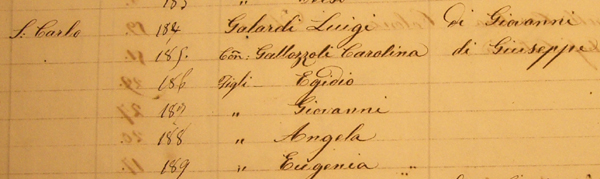 S. Carlo 184 Galardi Luigi di Giovanni
185. Con: Gallozzoli Carolina di Giuseppe
186 Figli – Egidio
187 " Giovanni
188 " Angela
189 " Eugenia "